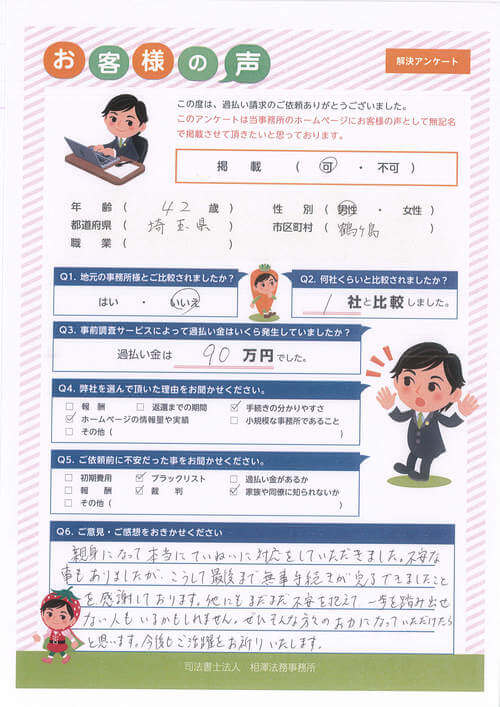 お客様の声
解決アンケート
この度は、過払い請求のご依頼ありがとうございました。
このアンケートは当事務所のホームページにお客様の声として無記名
で掲載させて頂きたいと思っております。
掲 載 （ 可 ・ 不可 ）
年 齢 （ 42 歳 ） 性 別 （ 男性 ・ 女性 ）
都道府県 （ 埼玉県 ） 市区町村 （ 鶴ヶ島 ）
職 業 （ ）
Q1. 地元の事務所様とご比較されましたか？
はい ・ いいえ
Q2. 何社くらいと比較されましたか？
1 社と比較しました。
Q3. 事前調査サービスによって過払い金はいくら発生していましたか？
過払い金は 90 万円でした。
Q4. 弊社を選んで頂いた理由をお聞かせください。
□ 報 酬 □ 返還までの期間 ☑ 手続きの分かりやすさ
☑ ホームページの情報量や実績 □ 小規模な事務所であること
□ その他（ ）
Q5. ご依頼前に不安だった事をお聞かせください。
□ 初期費用 ☑ ブラックリスト □ 過払い金があるか
□ 報 酬 ☑ 裁 判 ☑ 家族や同僚に知られないか
□ その他（ ）
Q6. ご意見・ご感想をおきかせください
親身になって本当にていねいに対応をしていただきました。不安な
事もありましたが、こうして最後まで無事手続きが完了できましたこと
を感謝しております。他にもまだまだ不安を抱えて一歩を踏み出せ
ない人もいるかもしれません。ぜひそんな方々のお力になっていただけたら
と思います。今後もご活躍をお祈りいたします。
司法書士法人 相澤法務事務所